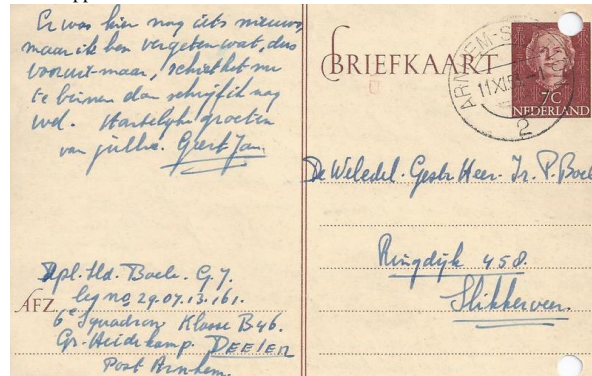 Er was hier nog iets nieuws,
maar ik ben vergeten wat, dus
vooruit-maar, schiet het me
te binnen dan schrijf ik nog
wel. Hartelijke groeten
van jullie. Geert Jan.
Dpl. Sld. Boele. G. J.
leg no, 29.07.13.161.
AFZ.
6e Squadron Klasse B46.
Gr. Heidekamp. DEELEN
Post Arnhem.
BRIEFKAART
ARNHEM-S
11 XI 5
2
7C
NEDERLAND
De Weledel. Gestr Heer. Ir. P. Boel
Ringdijk 458.
Slikkerveer.